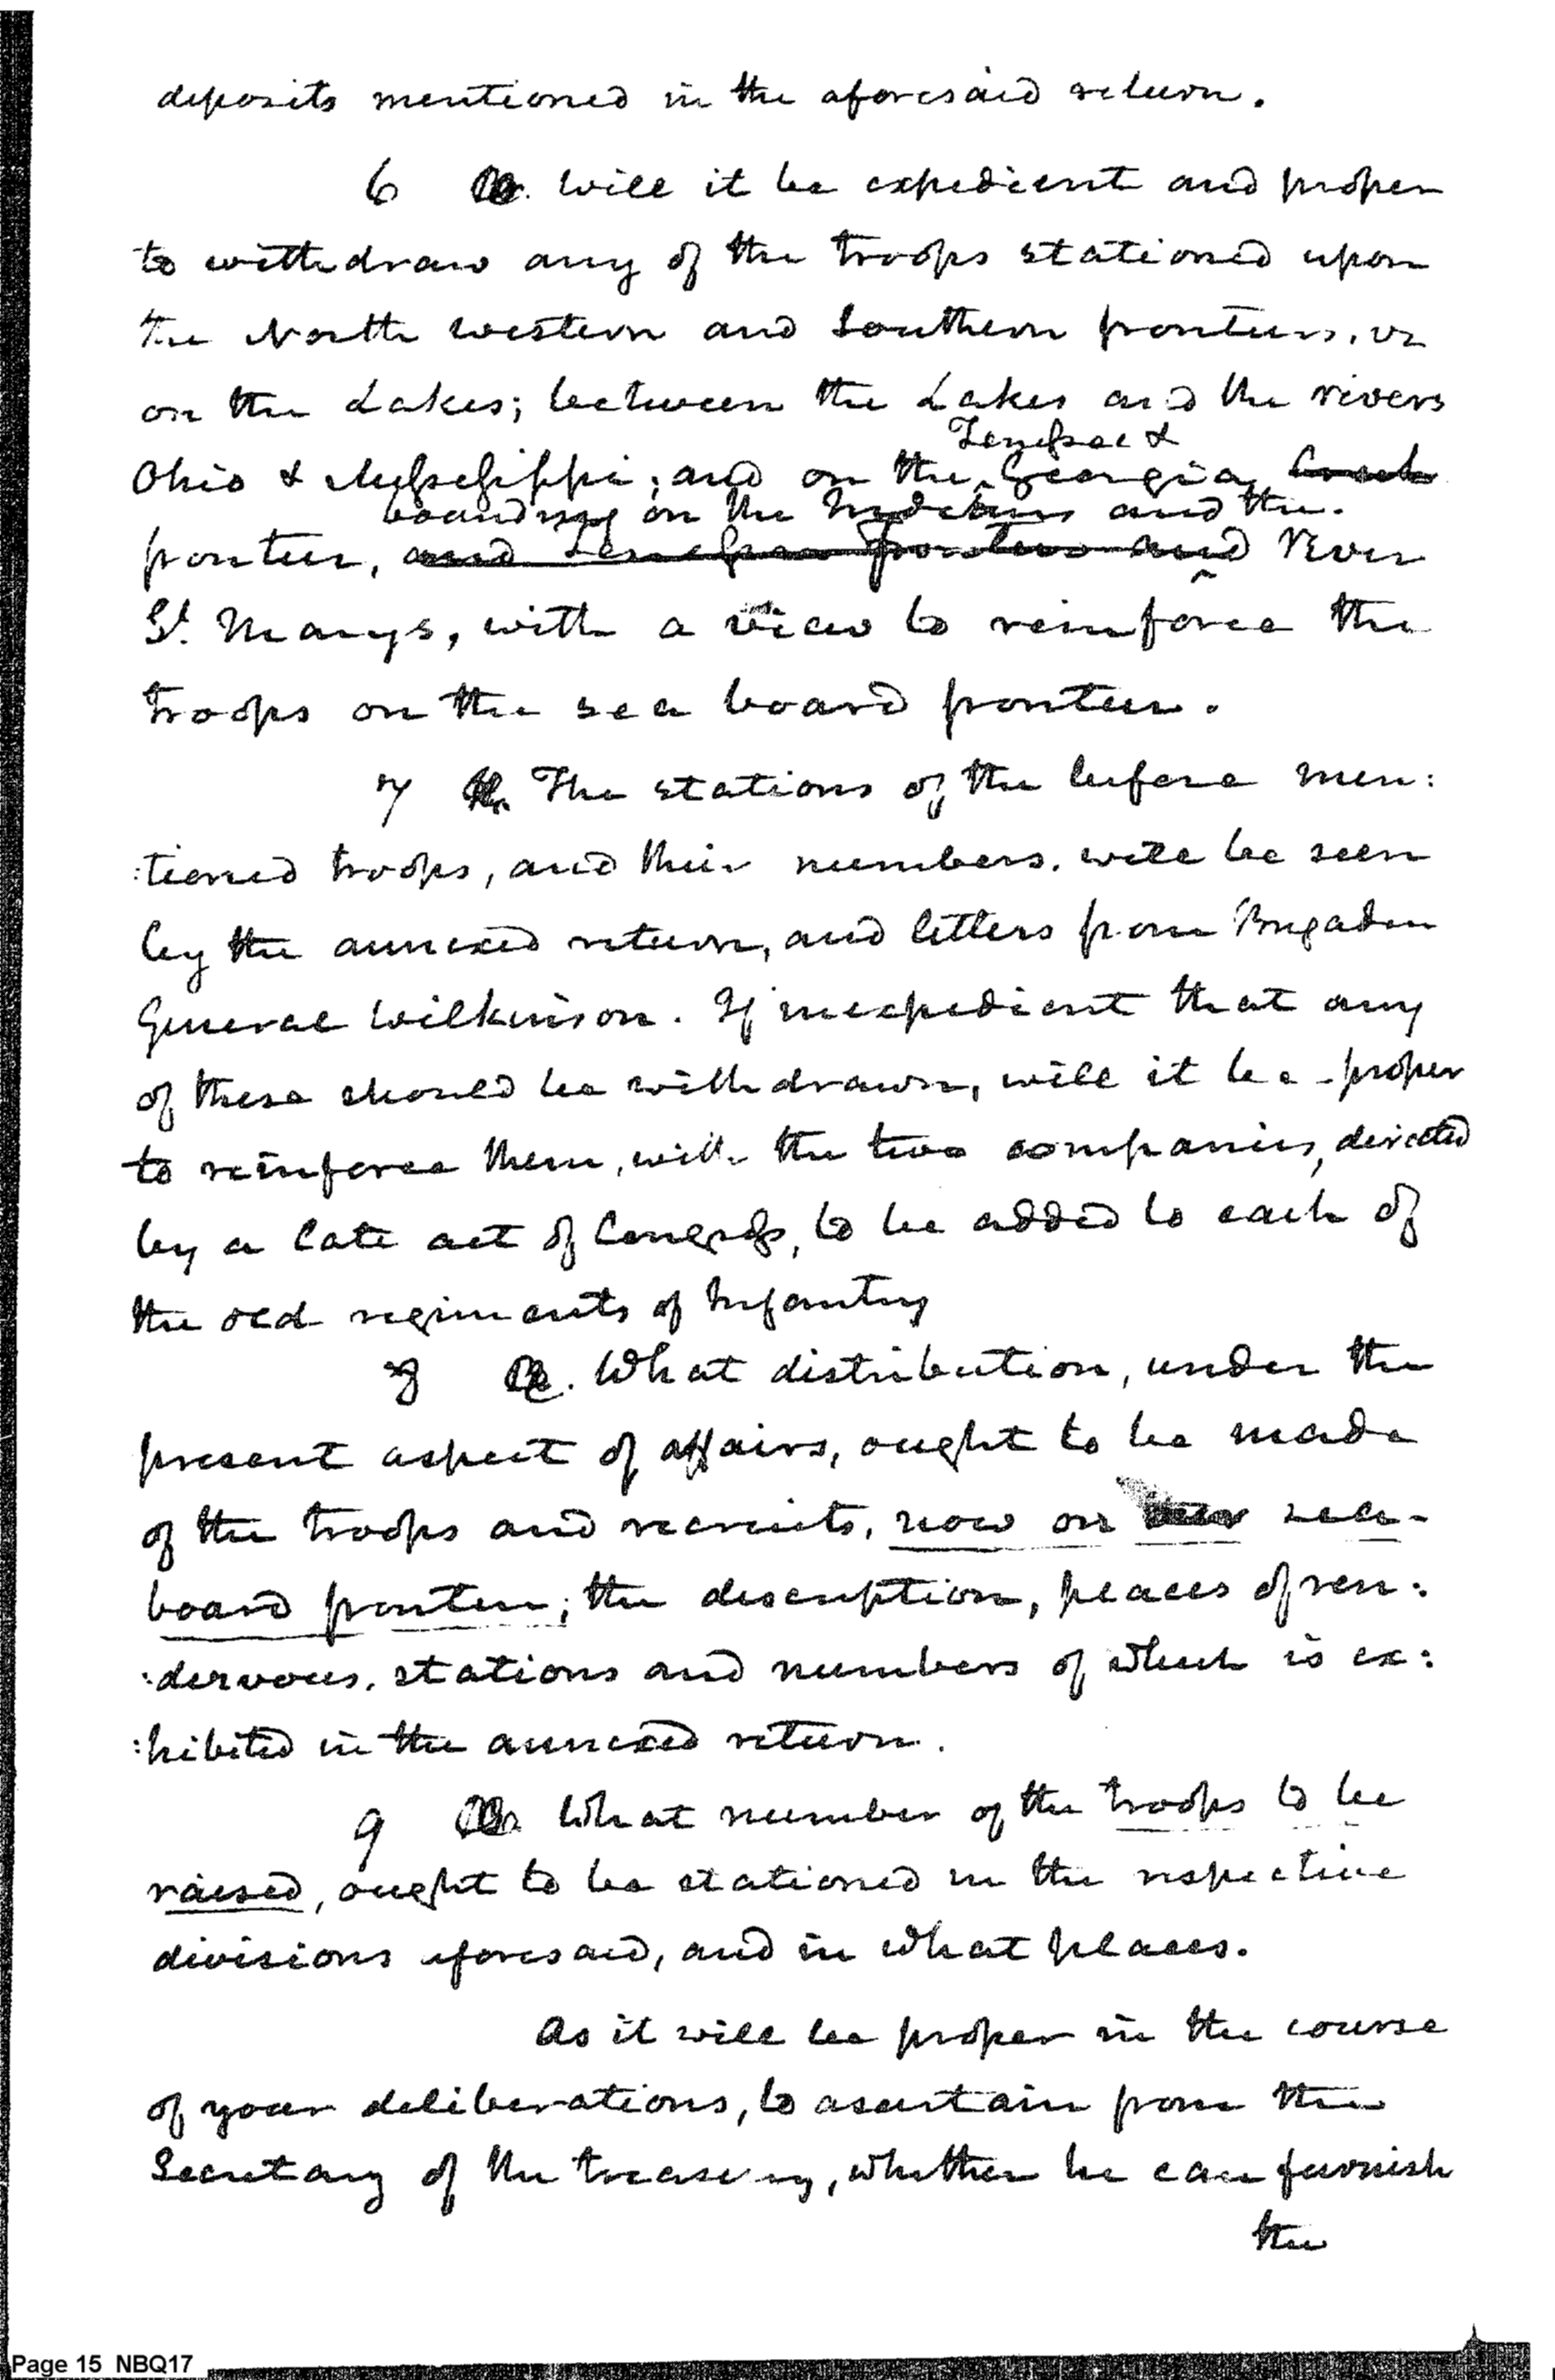 deposits mentioned in the aforesaid return.
6 Will it be expedient and proper
to withdraw any of the troops stationed upon
the North western and Southern frontiers, or
on the Lakes; between the Lakes and the rivers
Tenessee &
Ohio & Mississippi; and on the Georgia Creek
bounding on the Indians and the
frontier, and Tenessee frontiers and River
St. Marys, with a view to reinforce the
troops on the sea board frontier.
7 The stations of the before men:
:tioned troops, and their numbers, will be seen
by the annexed return, and letters from Brigadier
General Wilkinson. If inexpedient that any
of these should be withdrawn, will it be proper
to reinforce them, with the two companies, directed
by a late act of Congress, to be added to each of
the old regiments of Infantry
8 What distribution, under the
present aspect of affairs, ought to be made
of the troops and recruits, now on sea-
board frontier; the description, places of ren:
:dezvous, stations and numbers of which is ex:
:hibited in the annexed return.
9 What number of the troops to be
raised, ought to be stationed in the respective
divisions aforesaid, and in what places.
As it will be proper in the course
of your deliberations, to ascertain from the
Secretary of the treasury, whether he can furnish
the
Page 15 NBQ17